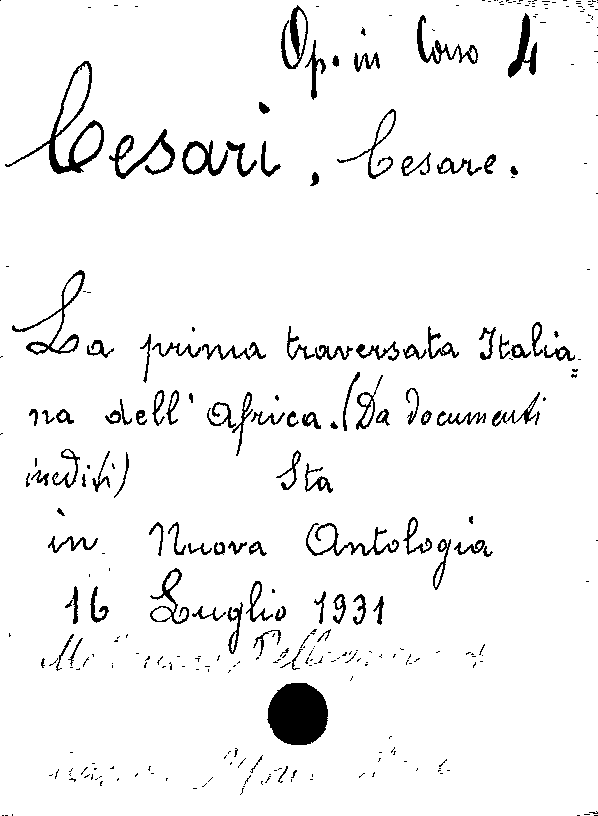 Op. in Corso 4
Cesari, Cesare.
La prima traversata Italia=
na dell' Africa. (Da documenti
inediti) Sta
in Nuova Antologia
16 Luglio 1931